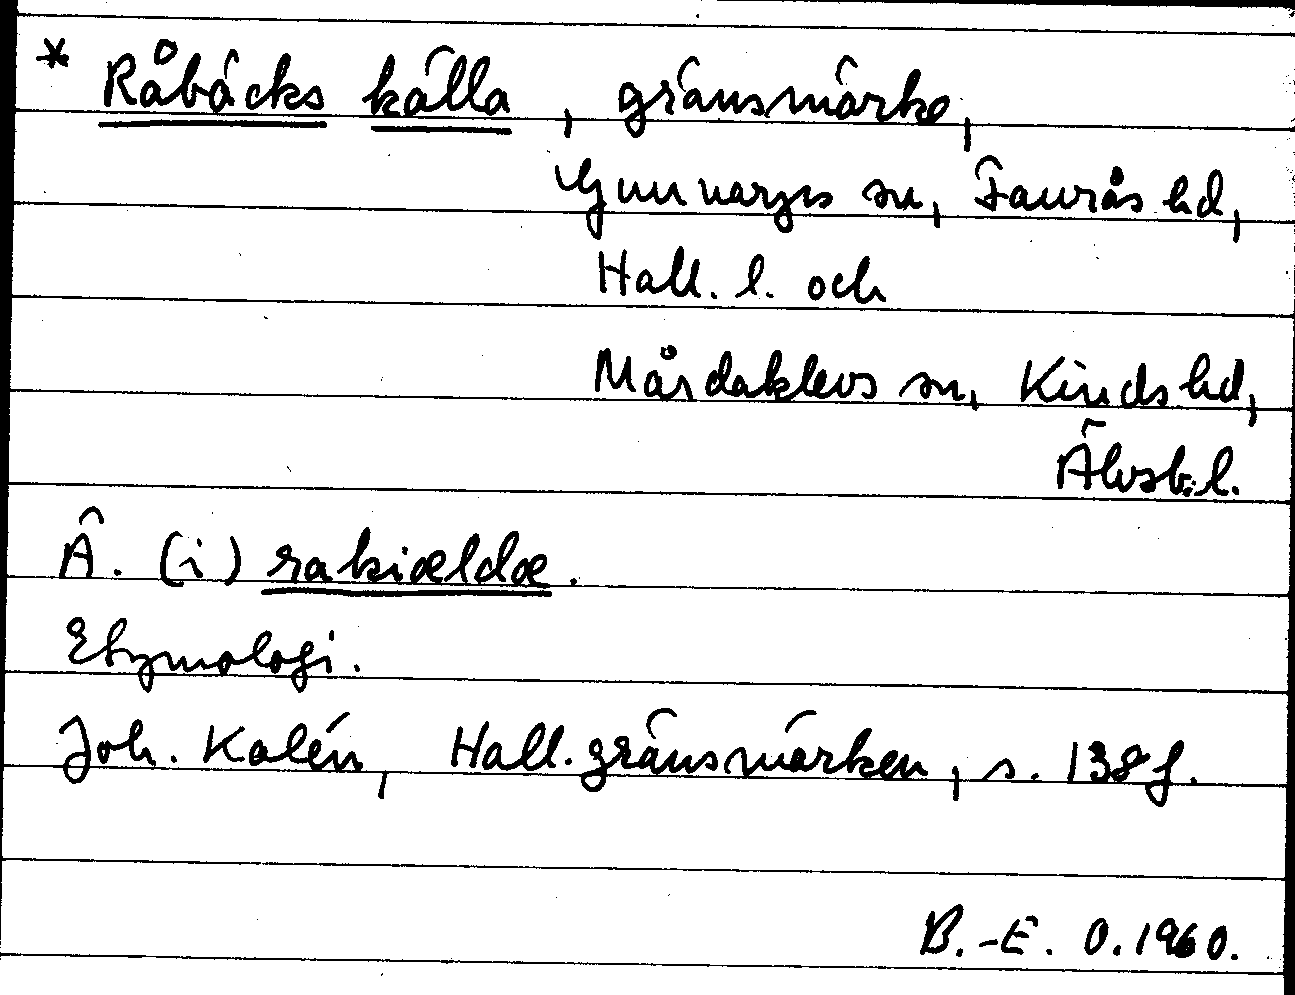 * Råbäcks källa, gränsmärke,
Gunnarps sn, Faurås hd,
Hall. l. och
Mårdaklevs sn, Kinds hd,
Älvsb. l.
Ä. (i) rakiældæ.
Etymologi.
Joh. Kalén, Hall. gränsmärken, s. 138 f.
B.-E. O. 1960.